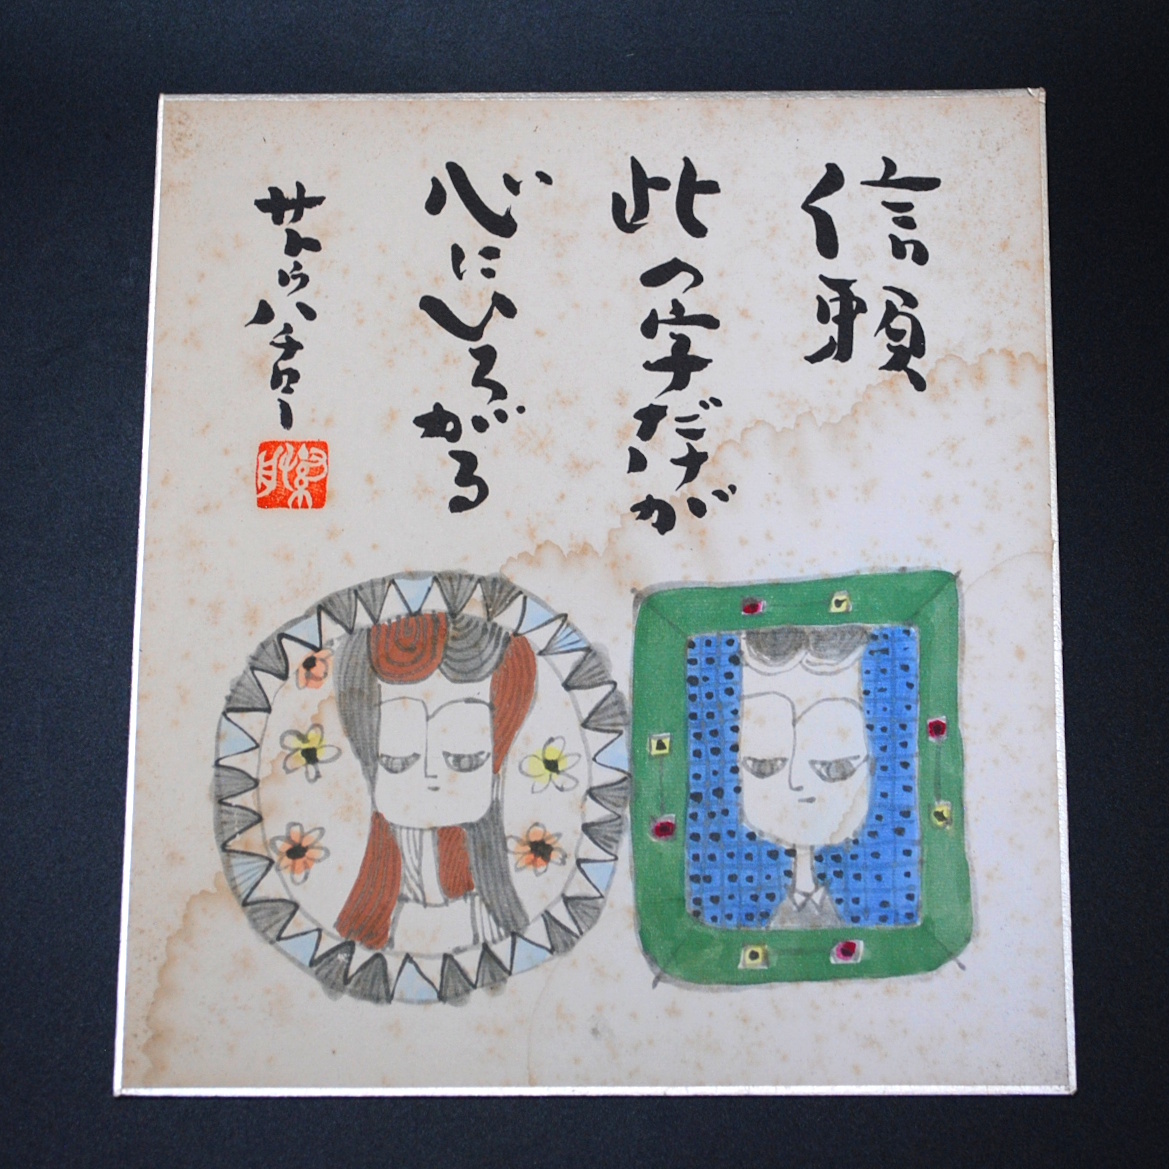 信頼
此の字だけが
心にひろがる
サトウハチロー